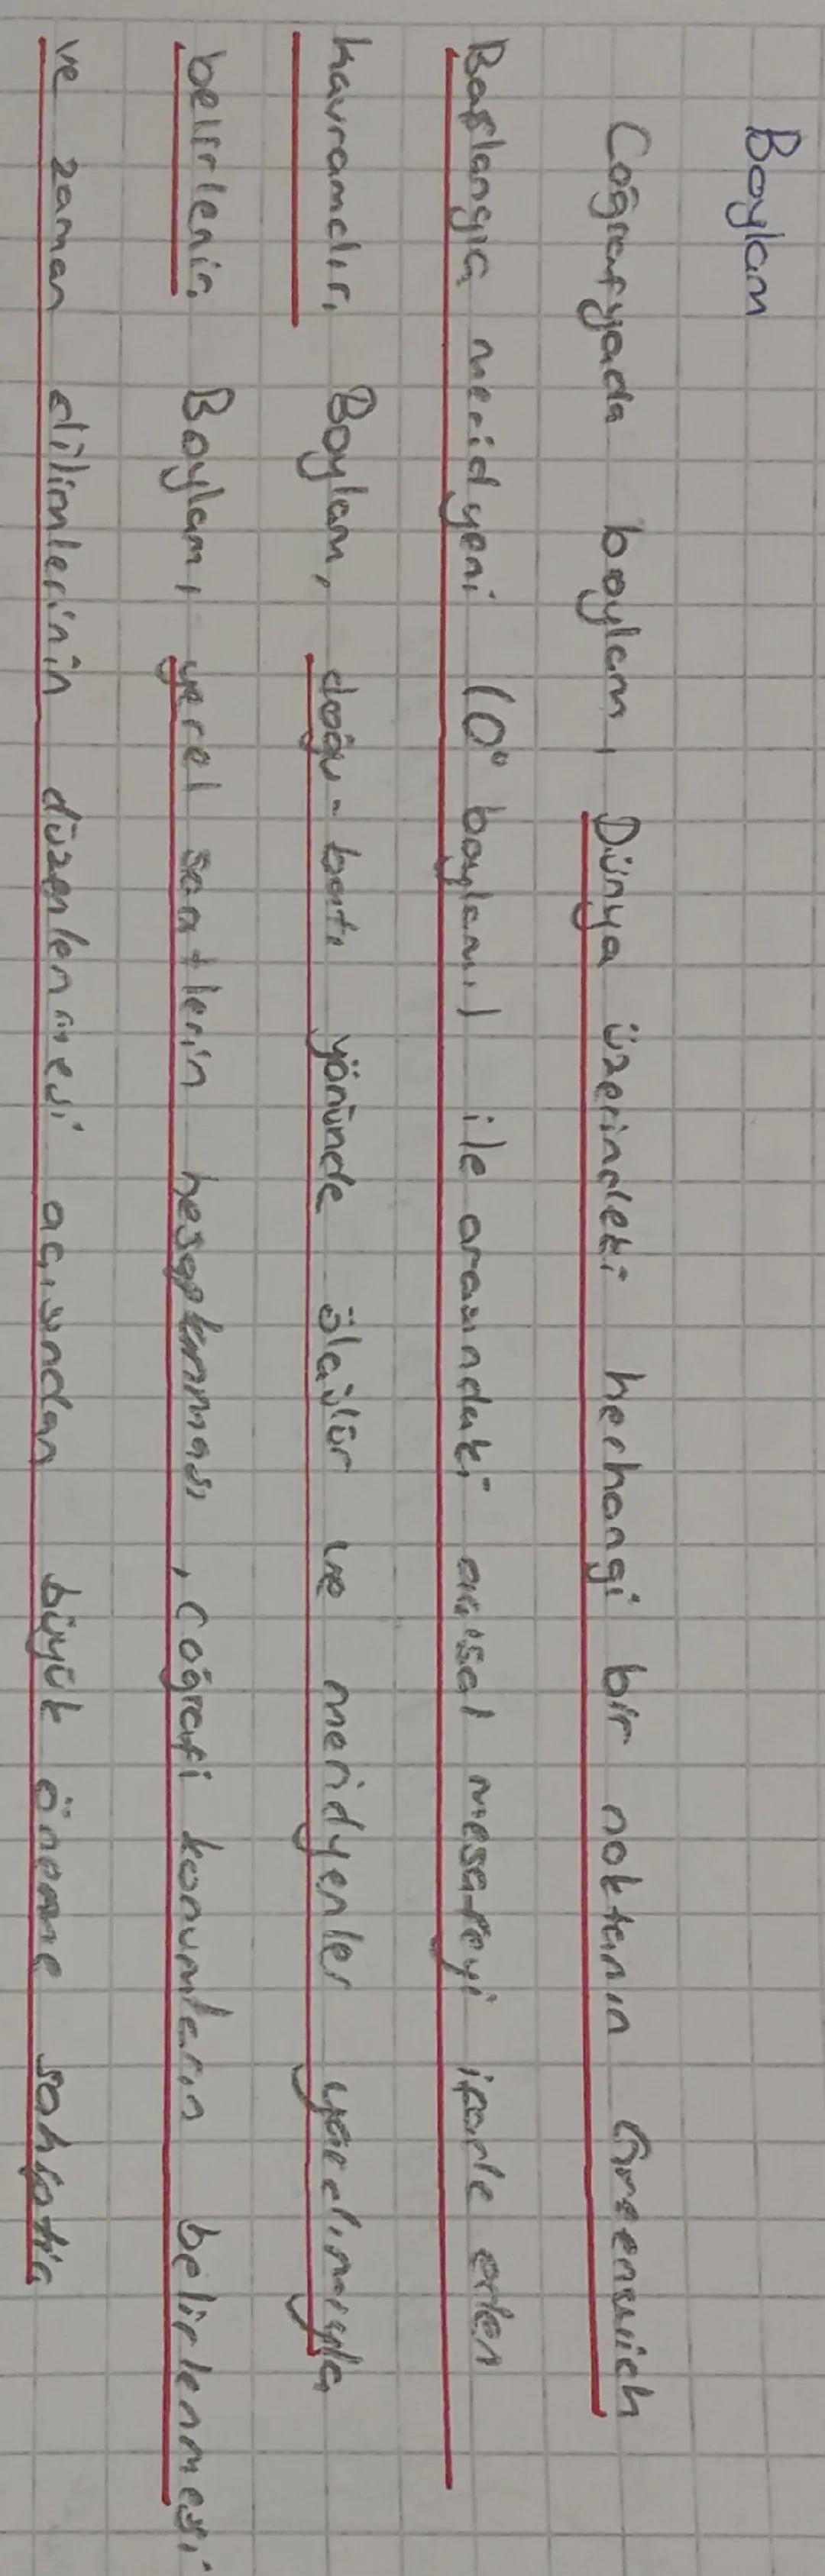 Boylam
Coğrafyada boylam, Dünya üzerindeki herhangi bir noktanın Greenwich
Başlangıç meridyeni (0° boylamı) ile arasındaki açısal mesafeyi ifade eden
kavramdır. Boylam, doğu-batı yönünde ölçülür ve meridyenler yardımıyla
belirlenir. Boylam, yerel saatlerin hesaplanması, coğrafi konumların belirlenmesi
ve zaman dilimlerinin düzenlenmesi açısından büyük öneme sahiptir.